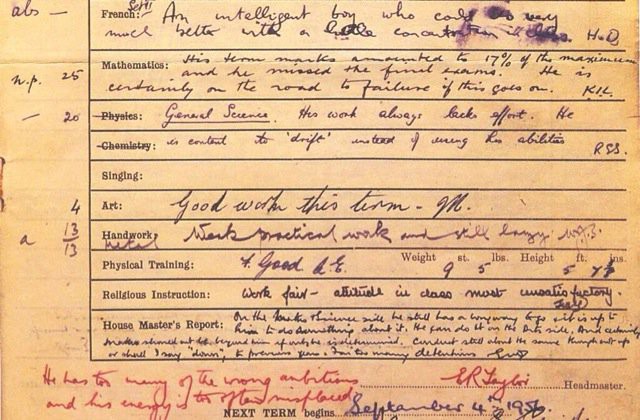 abs — French: Set 1 An intelligent boy who could do very
much better with a little concentration in class. H.D.
Mathematics: His term marks amounted to 17% of the maximum
n.p. 25 and he missed the final exams. He is
certainly on the road to failure if this goes on. 
— 20 Physics: General Science. His work always lacks effort. He
Chemistry: is content to 'drift' instead of using his abilities RSS.
Singing:
4 Art: Good work this term -
a 13/13 Handwork: Metal Weak practical work and still lazy
Physical Training: F. Good Weight 9 5 lbs. Height 5 ft. 7½ ins.
Religious Instruction: Work fair - attitude in class most unsatisfactory.
House Master's Report: On the he still has a long way to go still is up to
him to do something about it. He can do it on the side. And certainly
should not be beyond him if only he is determined. Conduct still about the same though out up
or shall I say "down", to previous years. Far too many detentions
He has too many of the wrong ambitions
and his energy is too often misplaced. ER Taylor Headmaster.
NEXT TERM begins September 4th 1956